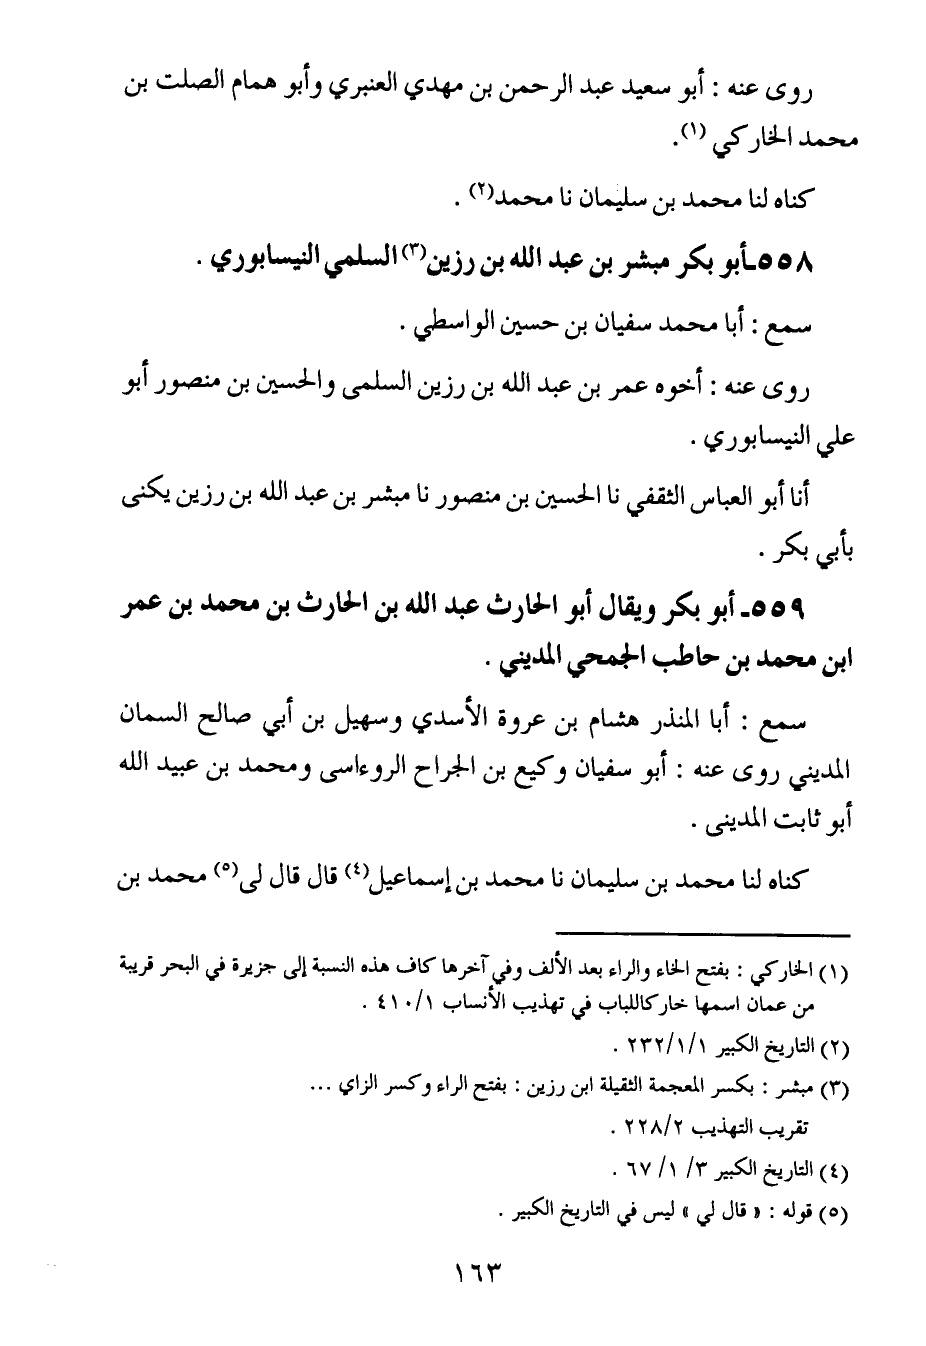 روى عنه : أبو سعيد عبد الرحمن بن مهدي العنبري وأبو همام الصلت بن
محمد الخاركي (١).
كناه لنا محمد بن سليمان نا محمد(٢) .
٥٥٨ـ أبو بكر مبشر بن عبد الله بن رزين(٣) السلمي النيسابوري .
سمع : أبا محمد سفيان بن حسين الواسطي .
روى عنه : أخوه عمر بن عبد الله بن رزين السلمى والحسين بن منصور أبو
علي النيسابوري .
أنا أبو العباس الثقفي نا الحسين بن منصور نا مبشر بن عبد الله بن رزين يكنى
بأبي بكر .
٥٥٩ـ أبو بكر ويقال أبو الحارث عبد الله بن الحارث بن محمد بن عمر
ابن محمد بن حاطب الجمحي المديني .
سمع : أبا المنذر هشام بن عروة الأسدي وسهيل بن أبي صالح السمان
المديني روى عنه : أبو سفيان وكيع بن الجراح الروءاسى ومحمد بن عبيد الله
أبو ثابت المدينى .
كناه لنا محمد بن سليمان نا محمد بن إسماعيل(٤) قال قال لى(٥) محمد بن
(١) الخاركي : بفتح الخاء والراء بعد الألف وفي آخرها كاف هذه النسبة إلى جزيرة في البحر قريبة
من عمان اسمها خارك اللباب في تهذيب الأنساب ٤١٠/١ .
(٢) التاريخ الكبير ٢٣٢/١/١ .
(٣) مبشر : بكسر المعجمة الثقيلة ابن رزين : بفتح الراء وكسر الزاي ...
تقريب التهذيب ٢٢٨/٢ .
(٤) التاريخ الكبير ٣/ ١/ ٦٧ .
(٥) قوله : « قال لي » ليس في التاريخ الكبير .
١٦٣